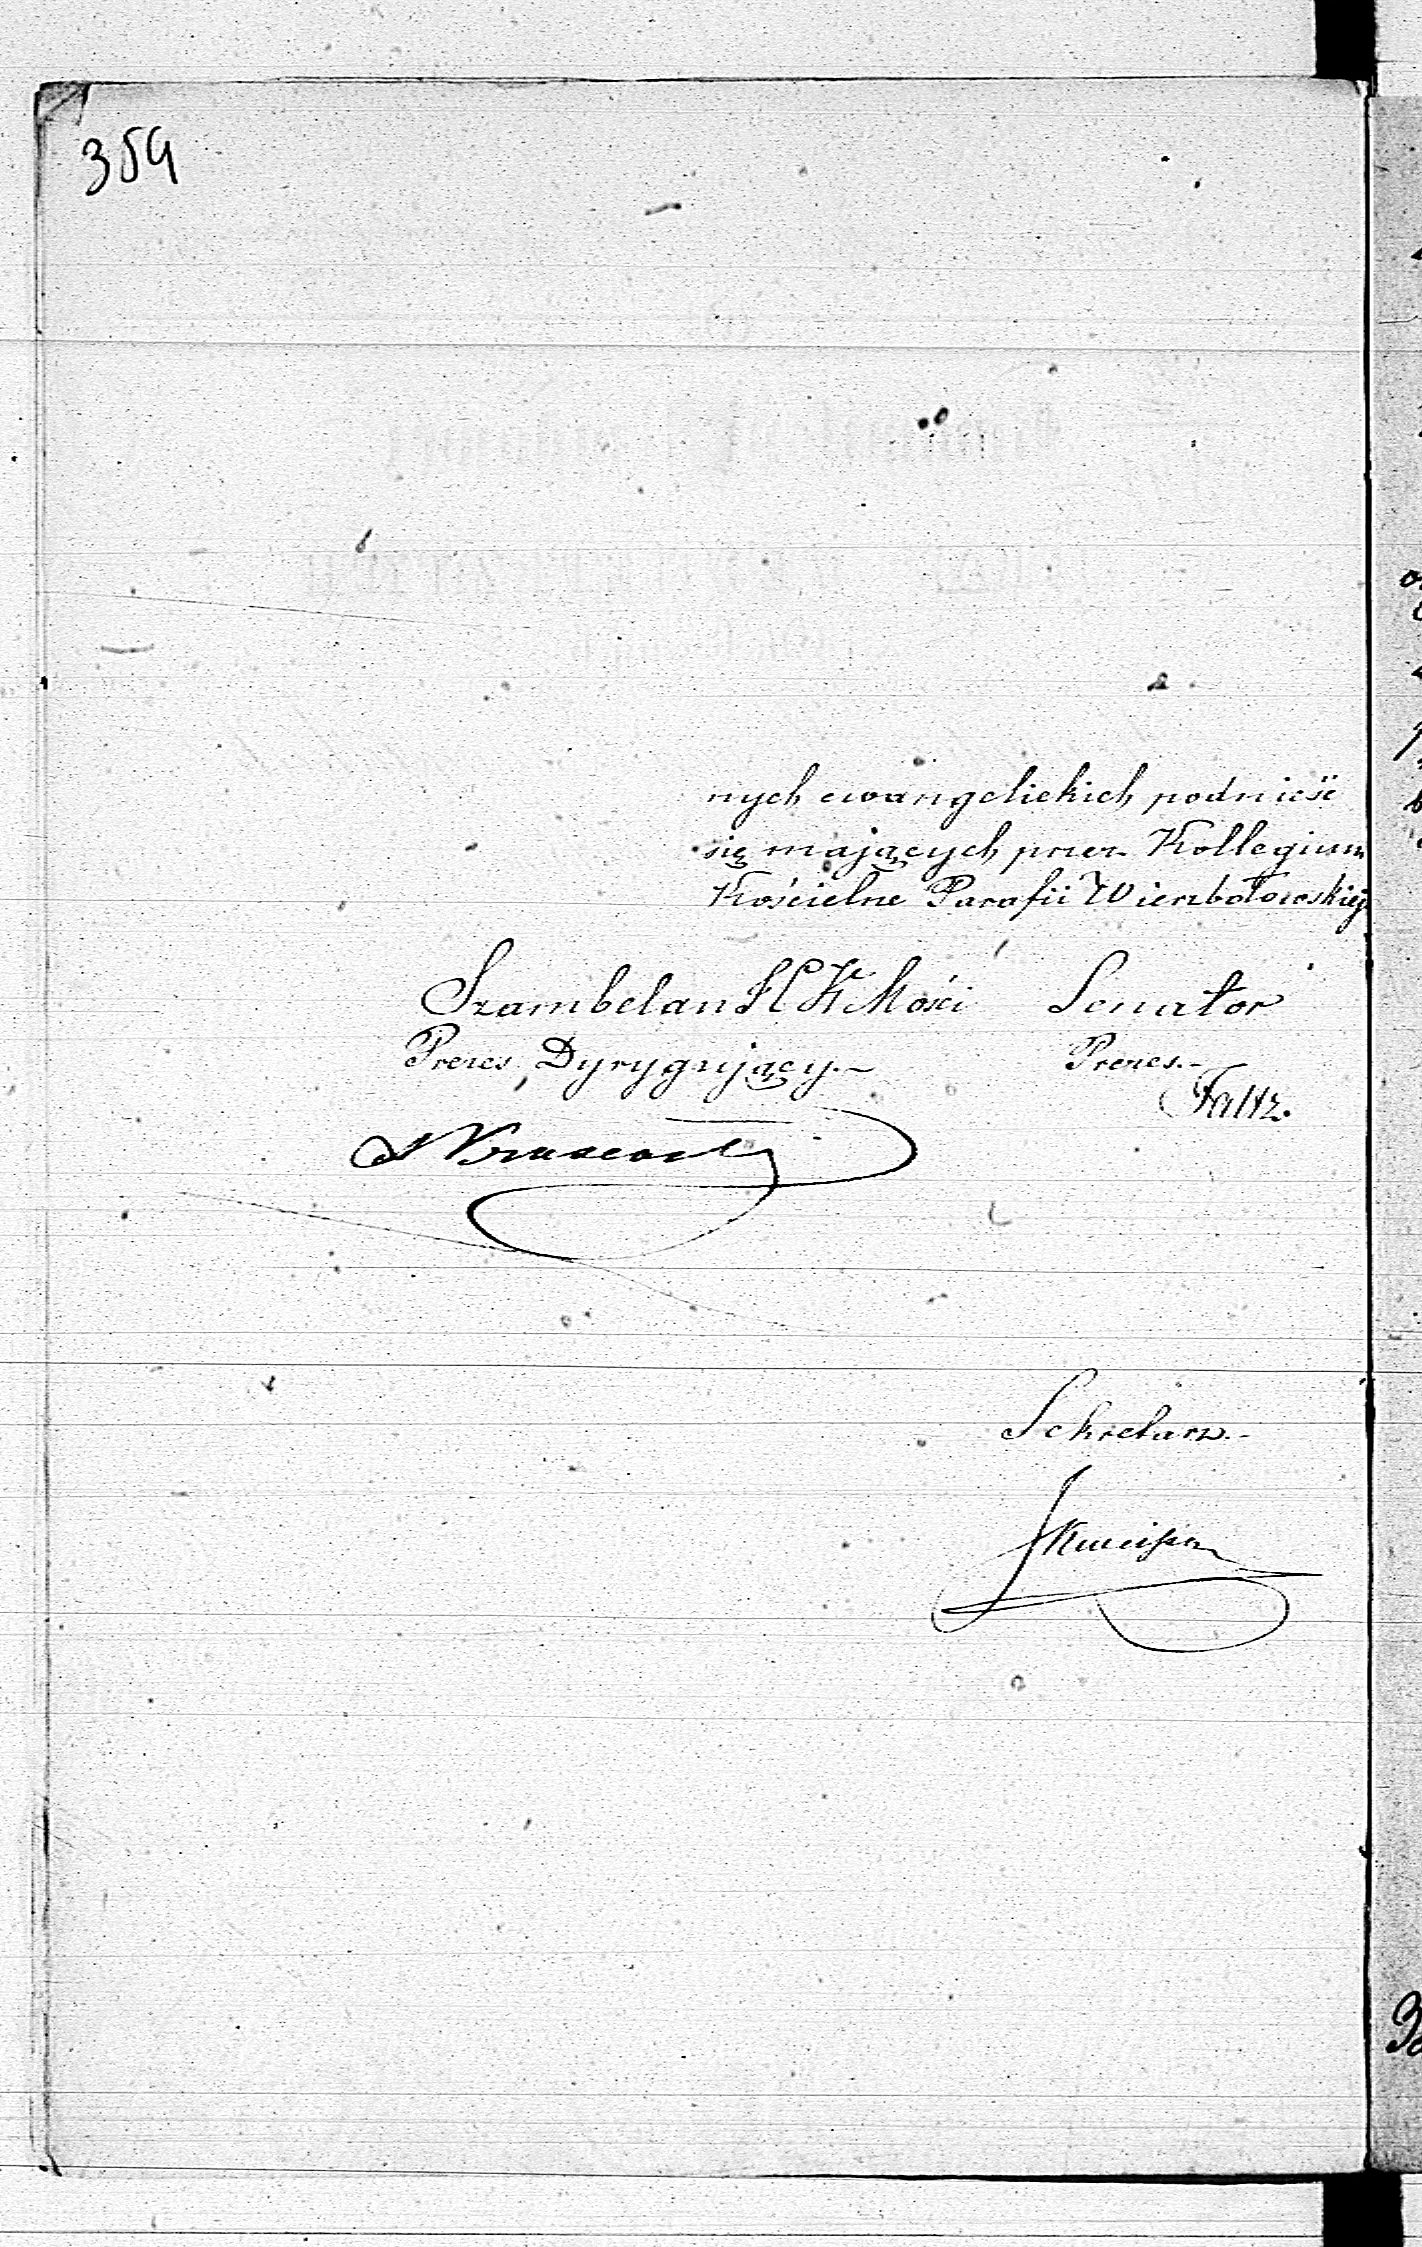 359
nych ewangelickich podnieść
się mających przez Kollegium
Kościelne Parafii Wierzbołowskiej
Szambelan J C K Mości Senator
Prezes Dyrygujący.- Prezes.-
Faltz.
Sekretarz.-